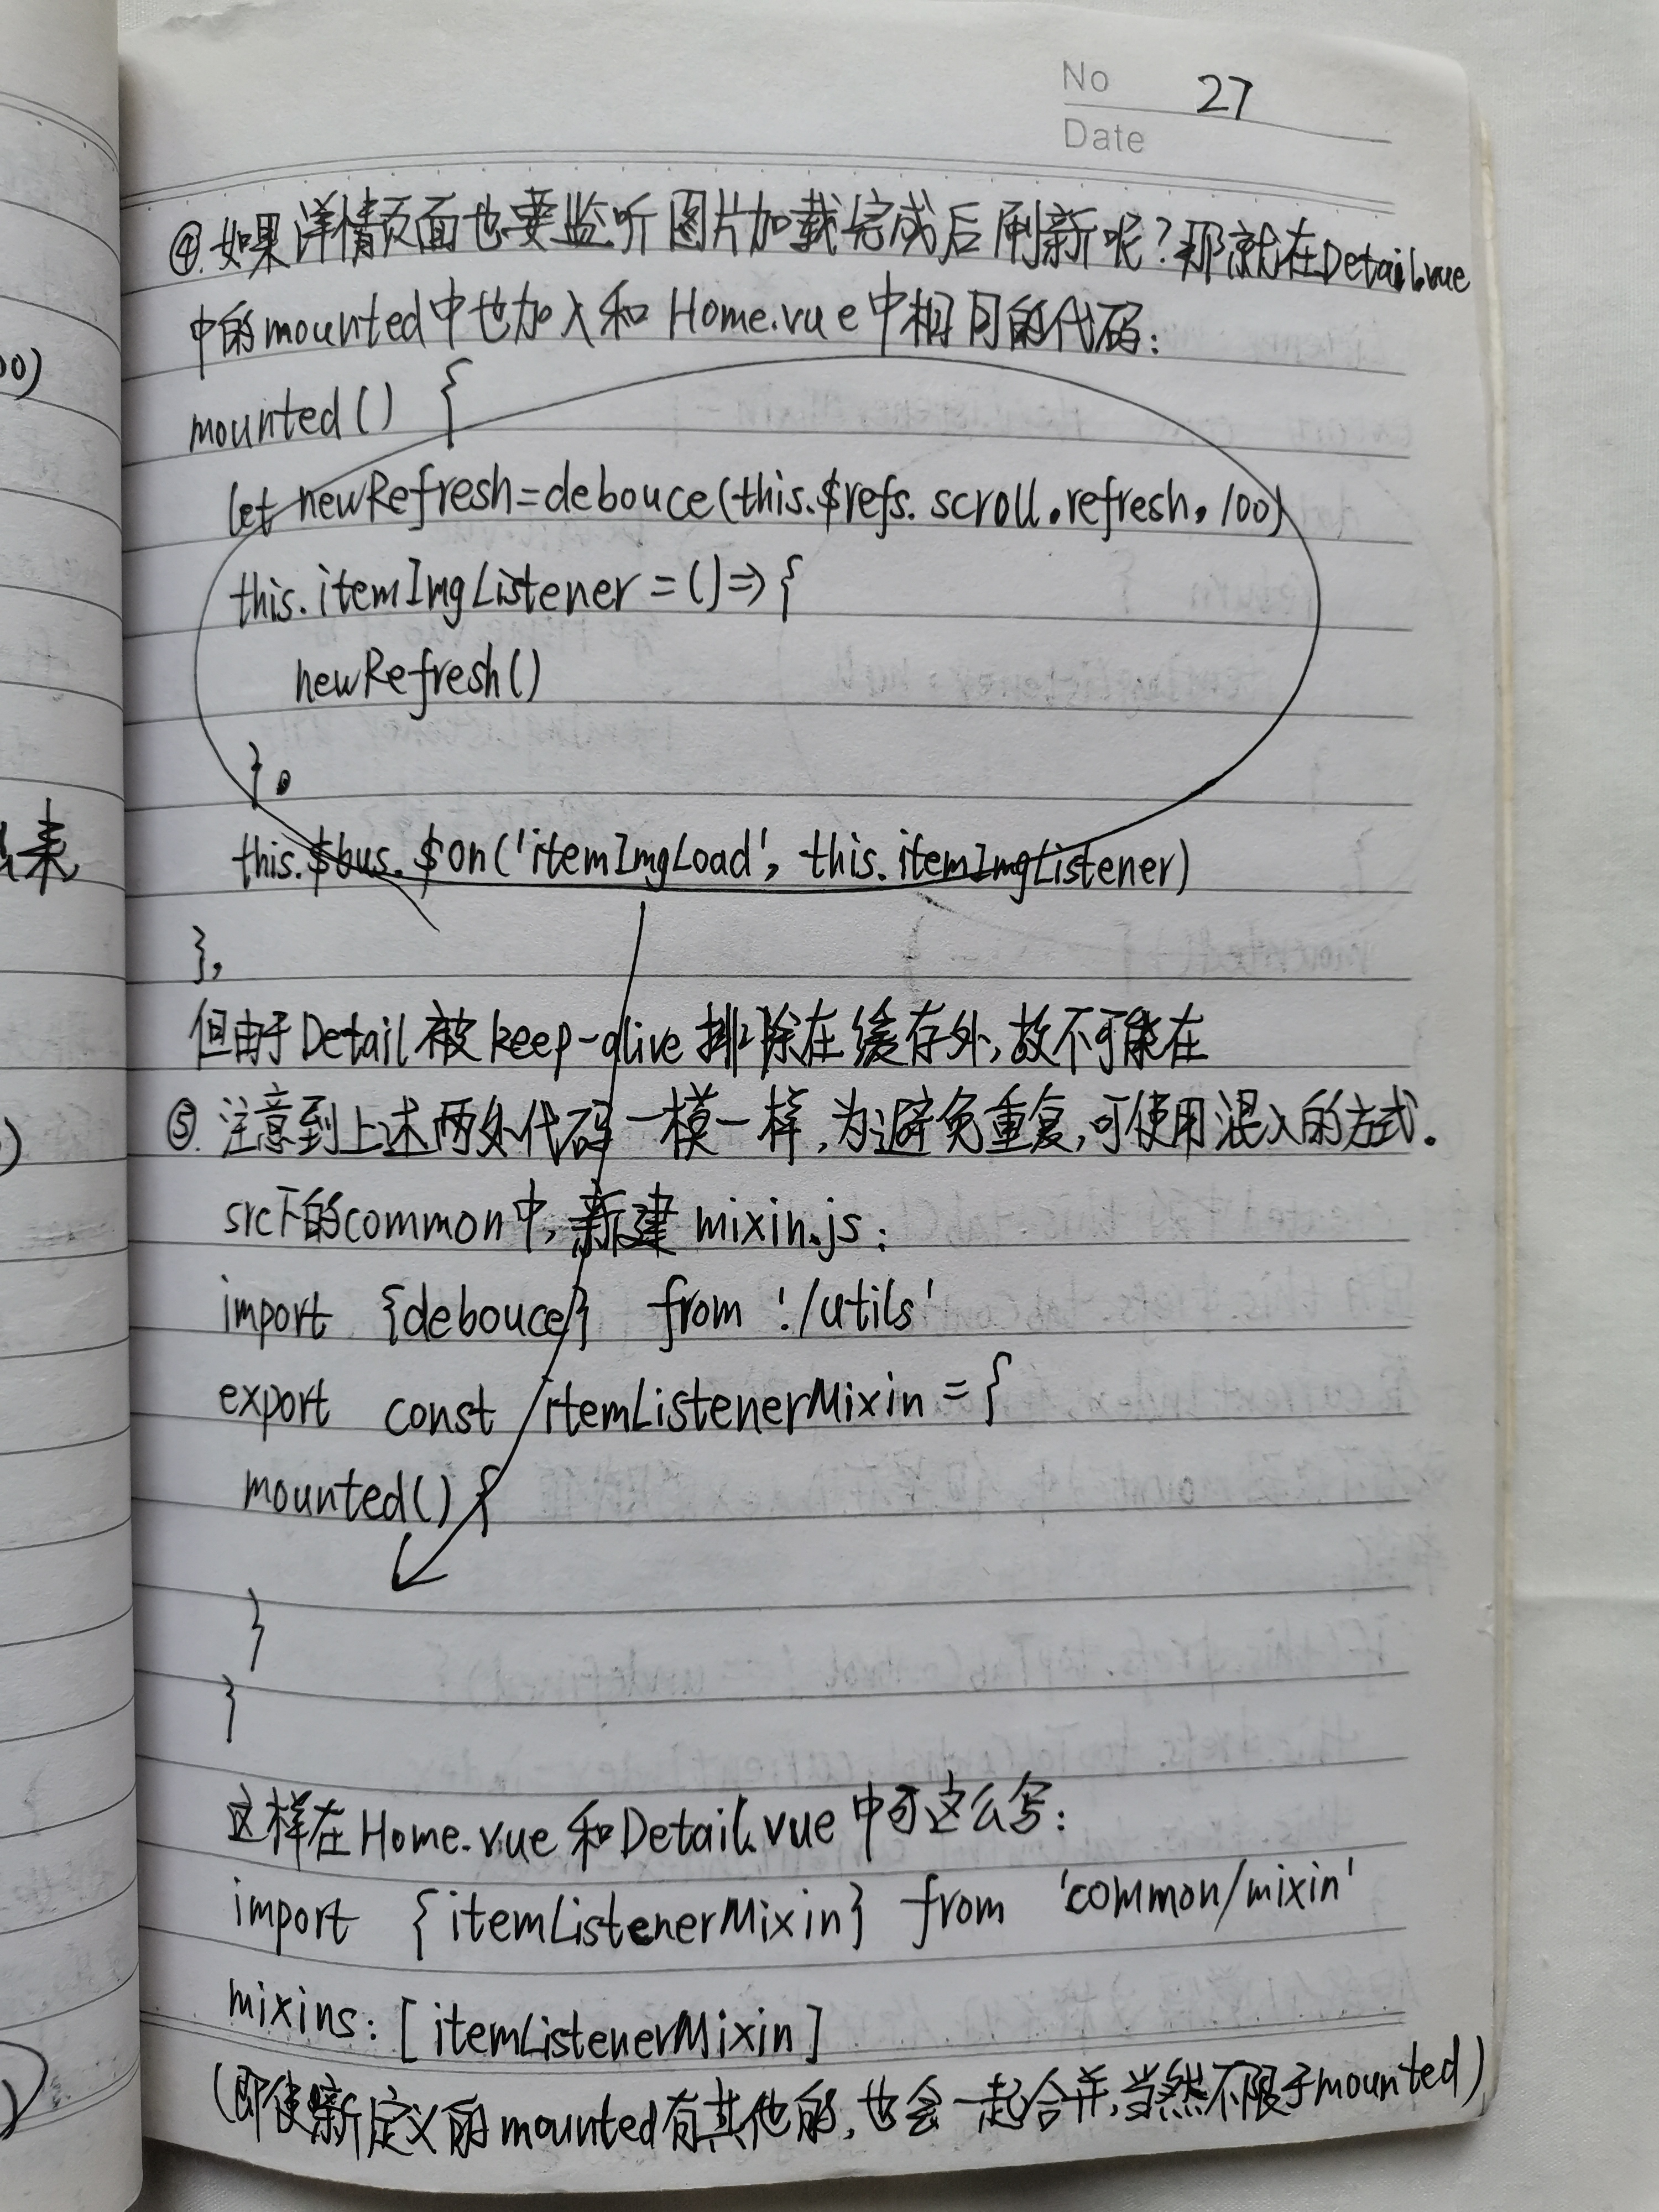 No 27
Date
④.如果详情页面也要监听图片加载完成后刷新呢?那就在Detail.vue
中的mounted中也加入和 Home.vue中相同的代码:
mounted() {
let newRefresh=debouce(this.$refs.scroll.refresh, 100)
this.itemImgListener = () => {
newRefresh()
}
this.$bus.$on('itemImgLoad', this.itemImgListener)
},
但由于Detail被keep-alive排除在缓存外,故不可能在
⑤. 注意到上述两处代码一模一样,为避免重复,可使用混入的方式.
src下的common中,新建 mixin.js:
import {debouce} from './utils'
export const itemListenerMixin = {
mounted() {
}
}
这样在Home.vue和Detail.vue中可这么写:
import {itemListenerMixin} from 'common/mixin'
mixins: [itemListenerMixin]
(即使新定义的mounted有其他的,也会一起合并,当然不限于mounted)
00)
来
)